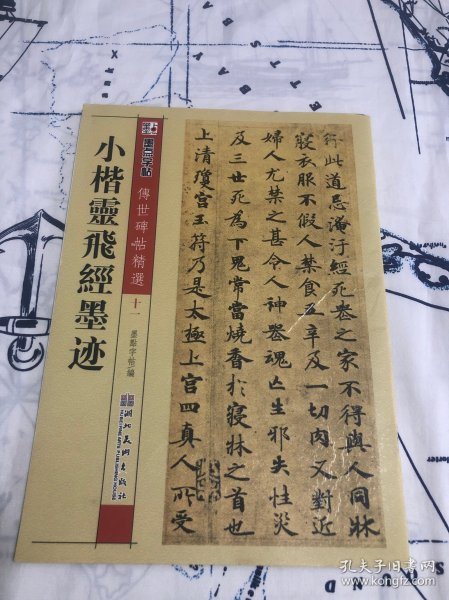 行此道忌淹汙經死喪之家不得與人同牀
寢衣服不假人禁食五辛及一切肉又對近
婦人尤禁之甚令人神喪魂亡生邪失性災
及三世死為下鬼常當燒香於寢牀之首也
上清瓊宮玉符乃是太極上宮四真人所受
墨点字帖
傳世碑帖精選
十一
墨點字帖 編
湖北美術出版社
小楷靈飛經墨迹
孔夫子旧书网
www.kongfz.com